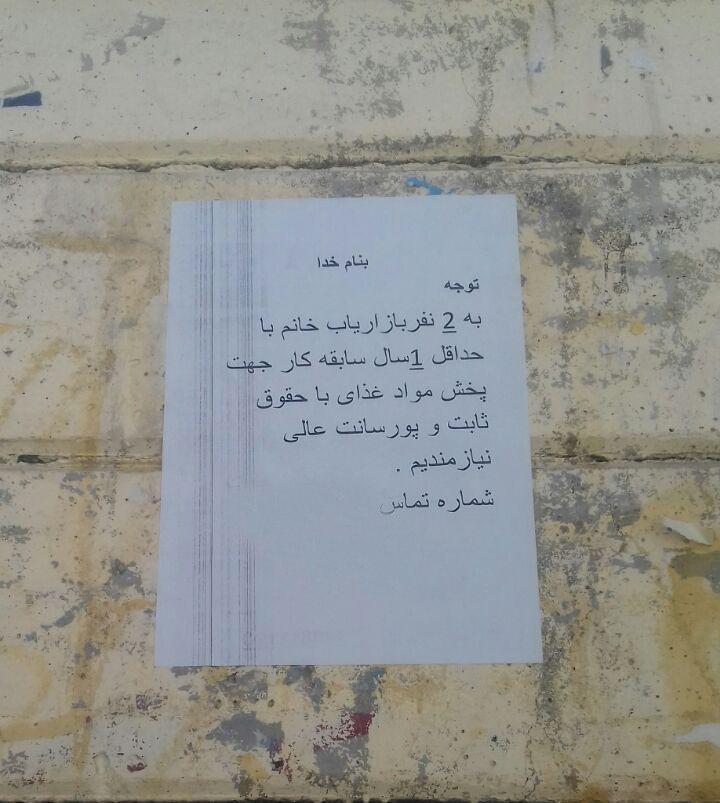 بنام خدا
توجه
به 2 نفربازاریاب خانم با
حداقل 1سال سابقه کار جهت
پخش مواد غذای با حقوق
ثابت و پورسانت عالی
نیازمندیم .
شماره تماس